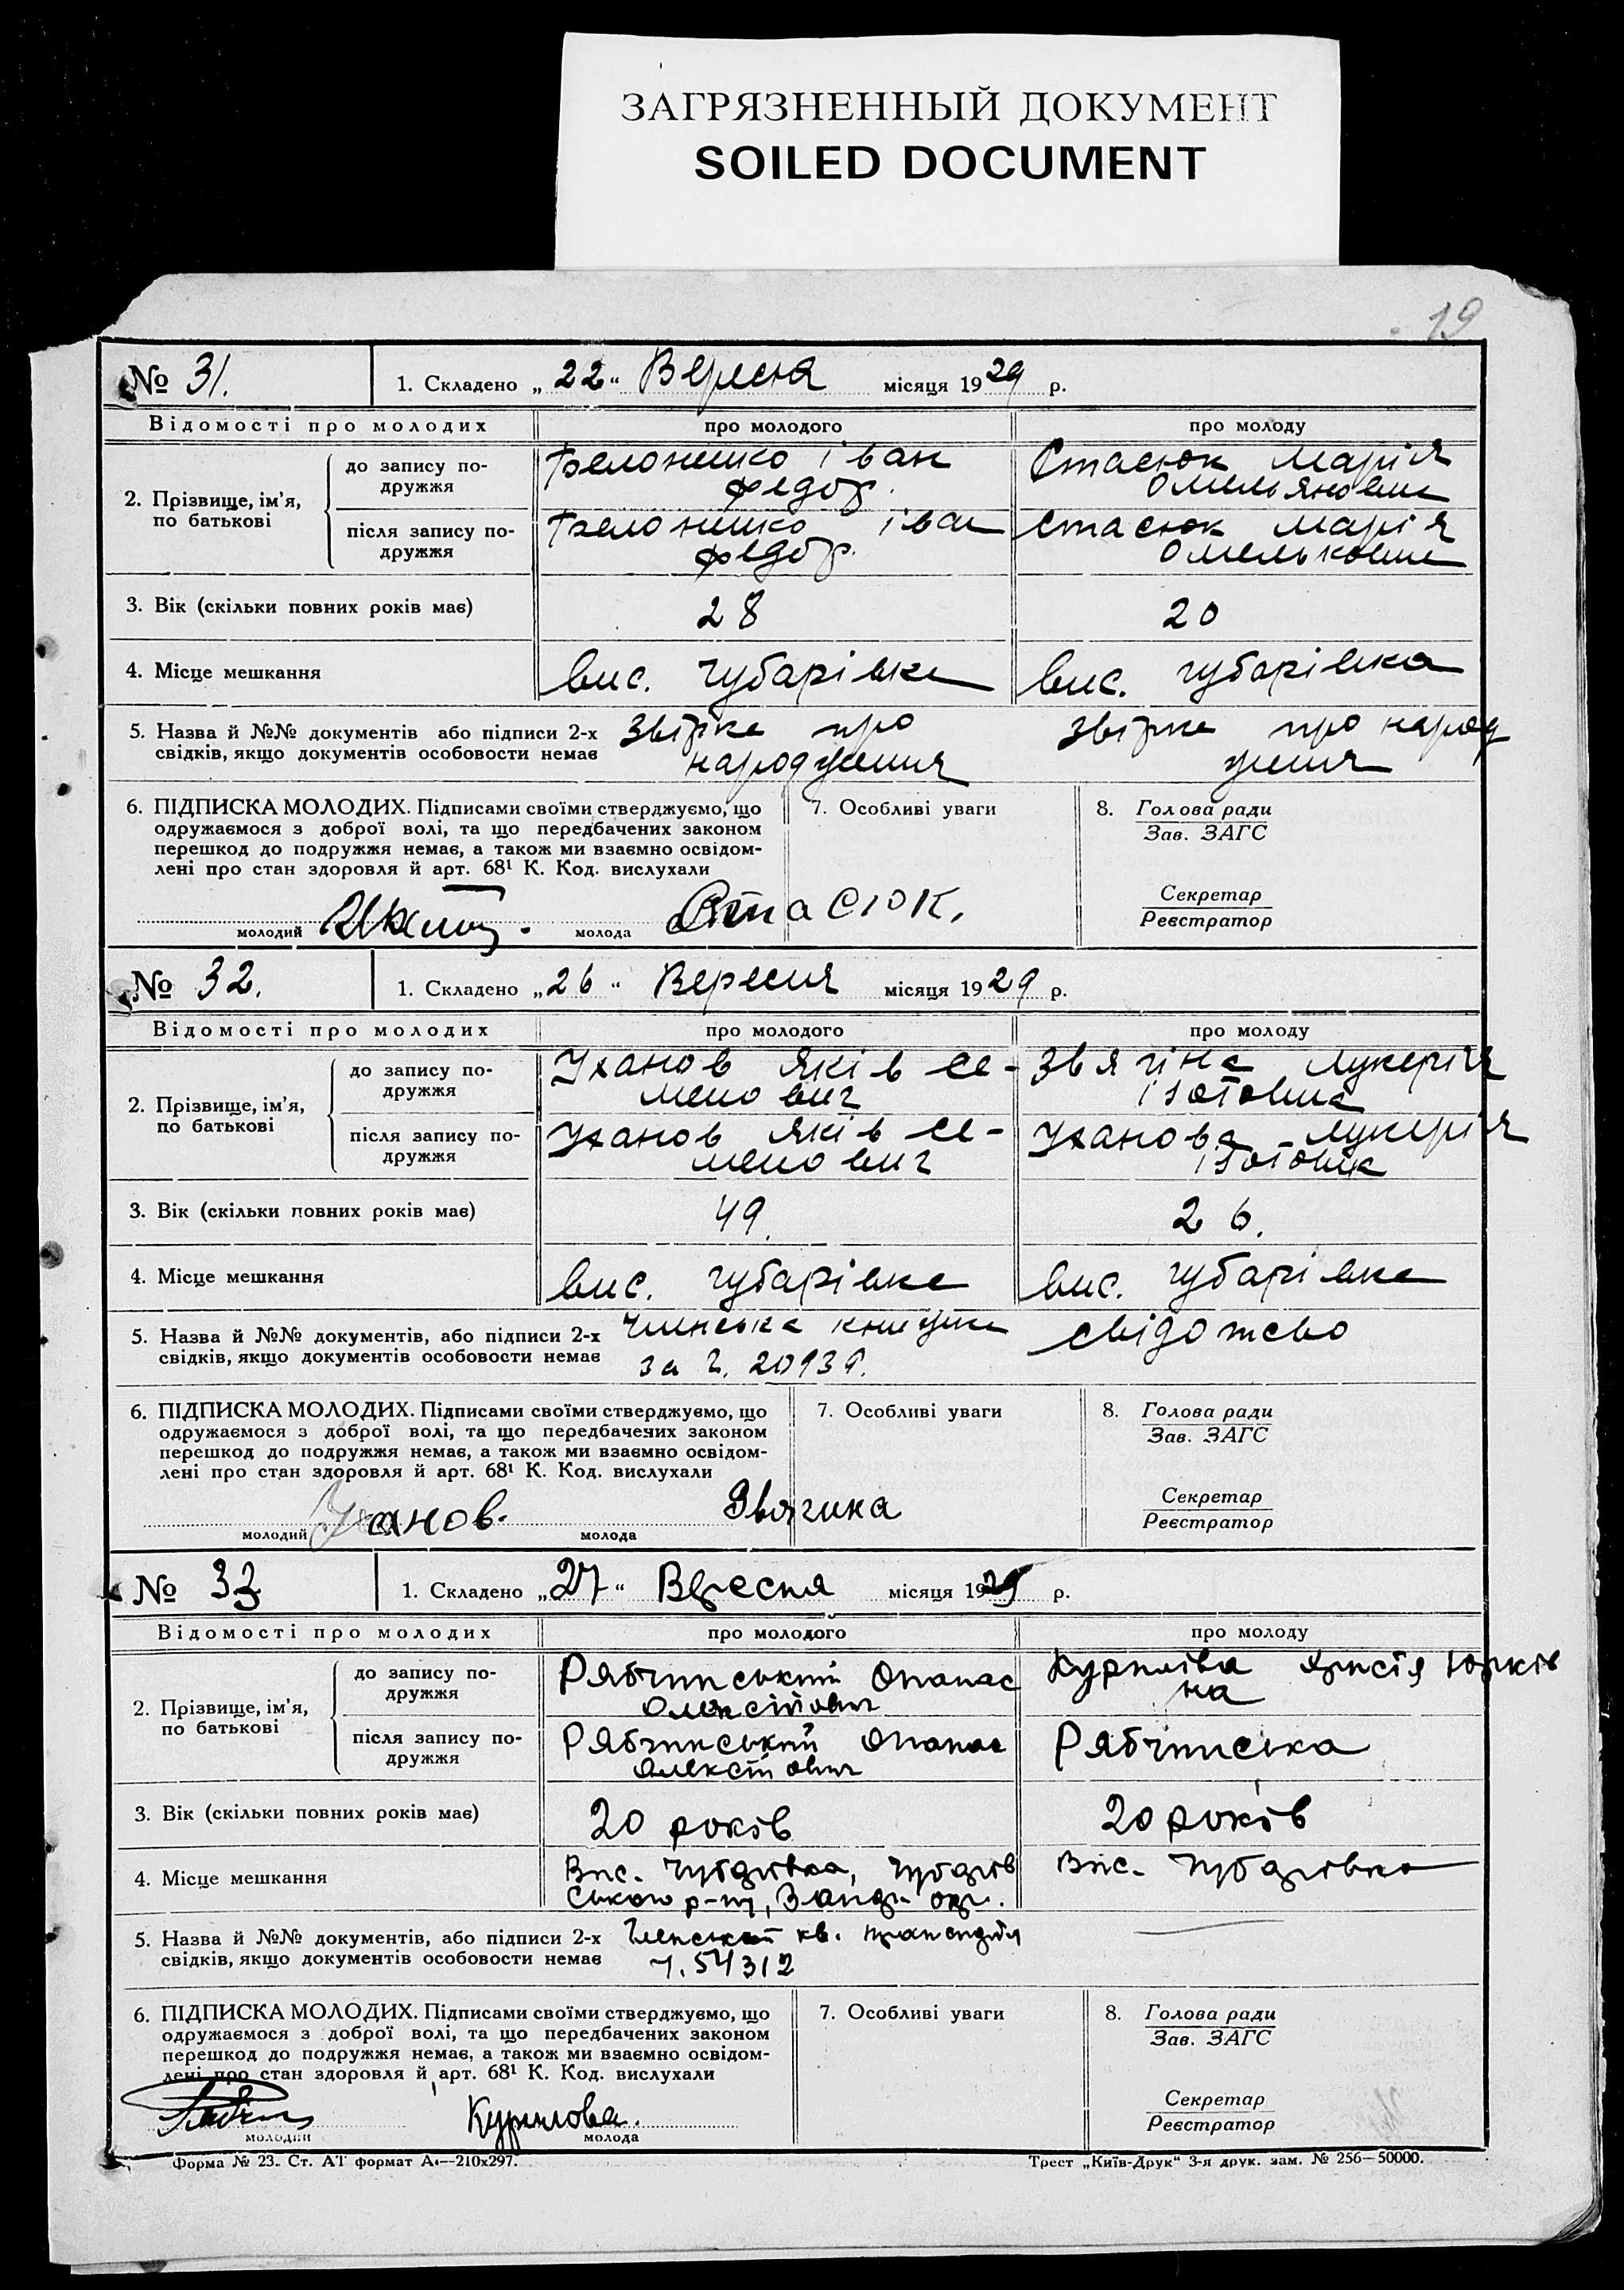 ЗАГРЯЗНЕННЫЙ ДОКУМЕНТ
SOILED DOCUMENT
19
№ 31. 1. Складено „22“ Вересня місяця 1929 р.
Відомості про молодих про молодого про молоду
2. Прізвище, ім’я, по батькові
до запису по-
дружжя
іван Стасюк Марія
федор. Омельяновна
після запису по-
дружжя
іван Стасюк Марія
федор. Омельковна
3. Вік (скільки повних років має) 28 20
4. Місце мешкання вис. Губарівка вис. Губарівка
5. Назва й №№ документів або підписи 2-х
свідків, якщо документів особовости немає
про про народ
народження ження
6. ПІДПИСКА МОЛОДИХ. Підписами своїми стверджуємо, що
одружаємося з доброї волі, та що передбачених законом
перешкод до подружжя немає, а також ми взаємно освідом-
лені про стан здоровля й арт. 68¹ К. Код. вислухали
7. Особливі уваги
8. Голова ради
Зав. ЗАГС
Секретар
Реєстратор
молодий молода Стасюк.
№ 32. 1. Складено „26“ Вересня місяця 1929 р.
Відомості про молодих про молодого про молоду
2. Прізвище, ім’я, по батькові
до запису по-
дружжя
Уханов Яків Се- Звягіна Лукерія
менович Ізотовна
після запису по-
дружжя
Уханов Яків Се- Уханова Лукерія
менович Ізотовна
3. Вік (скільки повних років має) 49. 26.
4. Місце мешкання вис. Губарівка вис. Губарівка
5. Назва й №№ документів, або підписи 2-х
свідків, якщо документів особовости немає
Членська книжка свідотсво
за ч. 20939.
6. ПІДПИСКА МОЛОДИХ. Підписами своїми стверджуємо, що
одружаємося з доброї волі, та що передбачених законом
перешкод до подружжя немає, а також ми взаємно освідом-
лені про стан здоровля й арт. 68¹ К. Код. вислухали
7. Особливі уваги
8. Голова ради
Зав. ЗАГС
Секретар
Реєстратор
молодий Уханов. молода Звягина
№ 33 1. Складено „27“ Вересня місяця 1929 р.
Відомості про молодих про молодого про молоду
2. Прізвище, ім’я, по батькові
до запису по-
дружжя
Рябчинський Опанас Юрків
Олексійович на
після запису по-
дружжя
Рябчинський Опанас Рябчинська
Олексійович
3. Вік (скільки повних років має) 20 років 20 років
4. Місце мешкання Вис. Губарівка, Губарів Вис. Губарівка
ського р-ну,
5. Назва й №№ документів, або підписи 2-х
свідків, якщо документів особовости немає
Членський кв.
ч. 54312
6. ПІДПИСКА МОЛОДИХ. Підписами своїми стверджуємо, що
одружаємося з доброї волі, та що передбачених законом
перешкод до подружжя немає, а також ми взаємно освідом-
лені про стан здоровля й арт. 68¹ К. Код. вислухали
7. Особливі уваги
8. Голова ради
Зав. ЗАГС
Секретар
Реєстратор
молодий Курилова. молода
Форма № 23. Ст. АТ формат А4—210х297. Трест „Київ-Друк“ 3-я друк. зам. № 256—50000.